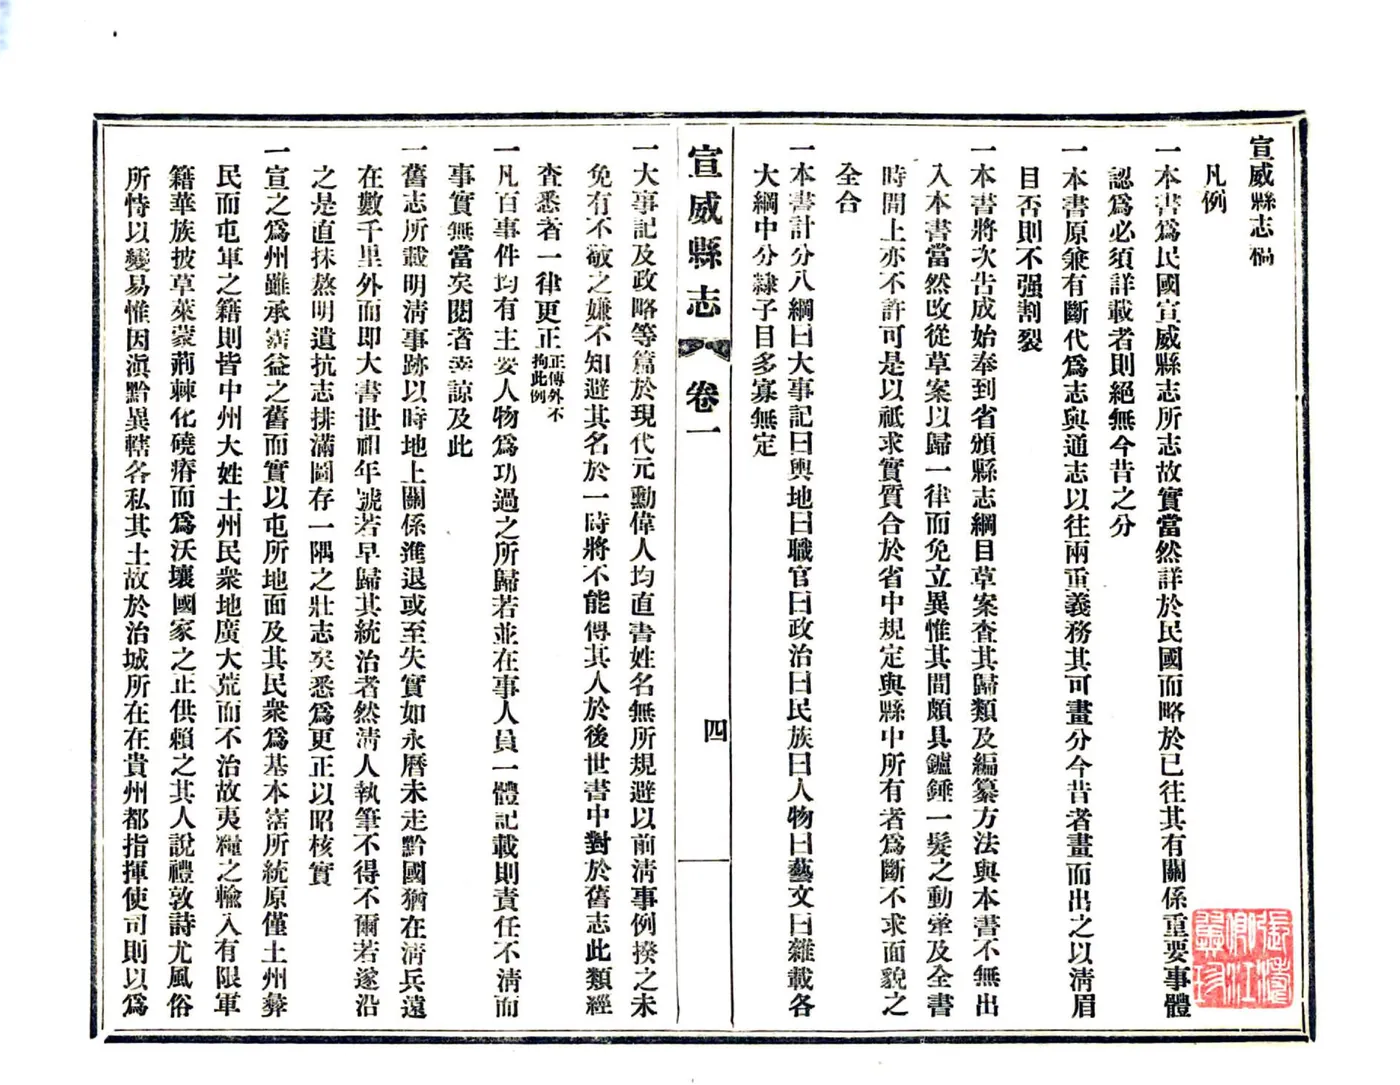 宣威縣志稿
凡例
一本書爲民國宣威縣志所志故實當然詳於民國而略於已往其有關係重要事體
認爲必須詳載者則絕無今昔之分
一本書原兼有斷代爲志與通志以往兩重義務其可畫分今昔者畫而出之以淸眉
目否則不强割裂
一本書將次告成始奉到省頒縣志綱目草案查其歸類及編纂方法與本書不無出
入本書當然改從草案以歸一律而免立異惟其間頗具鑪錘一髮之動牽及全書
時間上亦不許可是以祗求實質合於省中規定與縣中所有者爲斷不求面貌之
全合
一本書計分八綱曰大事記曰輿地曰職官曰政治曰民族曰人物曰藝文曰雜載各
大綱中分隸子目多寡無定
宣威縣志 卷一 四
一大事記及政略等篇於現代元勳偉人均直書姓名無所規避以前淸事例揆之未
免有不敬之嫌不知避其名於一時將不能得其人於後世書中對於舊志此類經
查悉者一律更正正傳外不拘此例
一凡百事件均有主要人物爲功過之所歸若並在事人員一體記載則責任不淸而
事實無當矣閱者幸諒及此
一舊志所載明淸事跡以時地上關係進退或至失實如永曆未走黔國猶在淸兵遠
在數千里外而即大書世祖年號若早歸其統治者然淸人執筆不得不爾若遂沿
之是直抹煞明遺抗志排滿圖存一隅之壯志矣悉爲更正以昭核實
一宣之爲州雖承霑益之舊而實以屯所地面及其民衆爲基本霑所統原僅土州彝
民而屯軍之籍則皆中州大姓土州民衆地廣大荒而不治故夷糧之輸入有限軍
籍華族披草萊蒙荊棘化磽瘠而爲沃壤國家之正供賴之其人說禮敦詩尤風俗
所恃以變易惟因滇黔異轄各私其土故於治城所在在貴州都指揮使司則以爲